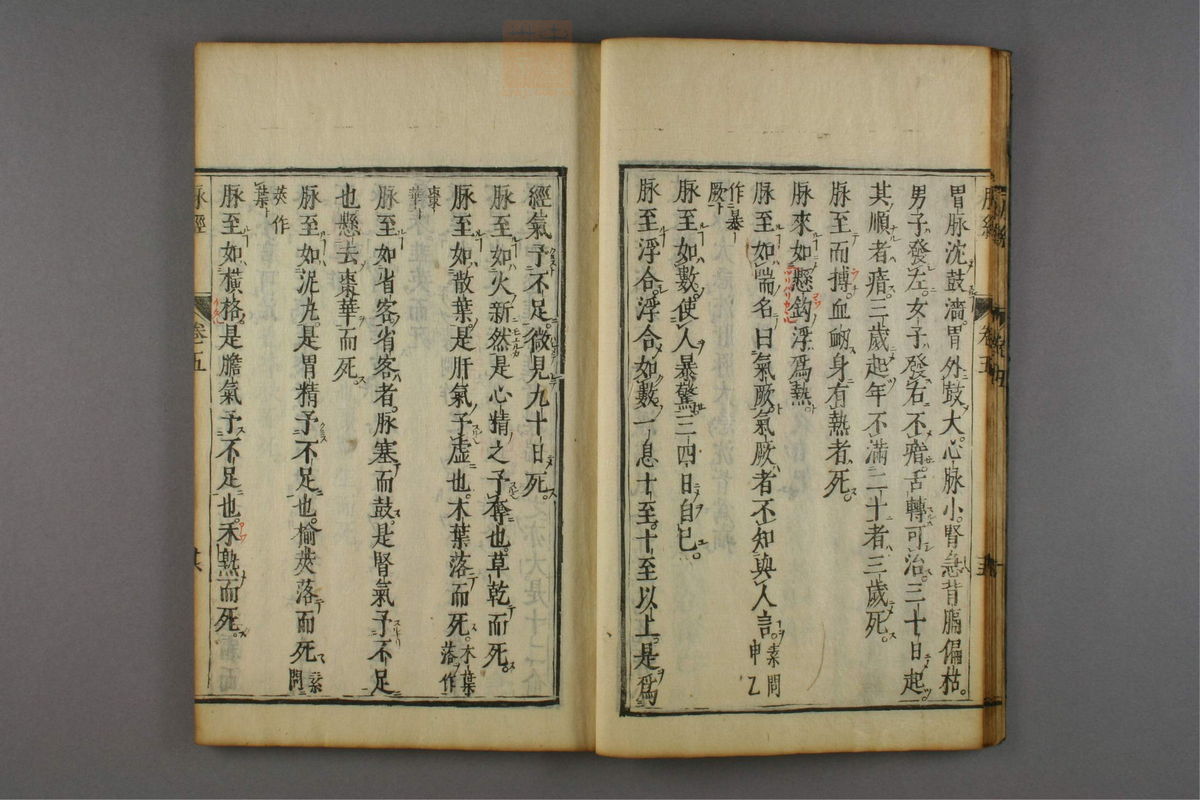 胃脉沈鼓濇胃外鼓大心脉小腎急皆膈偏枯
男子發左女子發右不瘖舌轉可治三十日起
其順者瘖三歲起年不滿二十者三歲死
脉至而搏血衂身有熱者死
脉來如懸鈎浮爲熱
脉至如喘名曰氣厥氣厥者不知與人言素問甲乙
作暴厥
脉至如數使人暴驚三四日自已
脉至浮合浮合如數一息十至十至以上是爲
經氣予不足微見九十日死
脉至如火新然是心精之予奪也草乾而死
脉至如散葉是肝氣予虚也木葉落而死木葉落作
棗華
脉至如省客省客者脉塞而鼓是腎氣予不足
也懸去棗華而死
脉至如泥丸是胃精予不足也榆莢落而死素問
莢作葉
脉至如橫格是膽氣予不足也禾熟而死
脉經
卷五